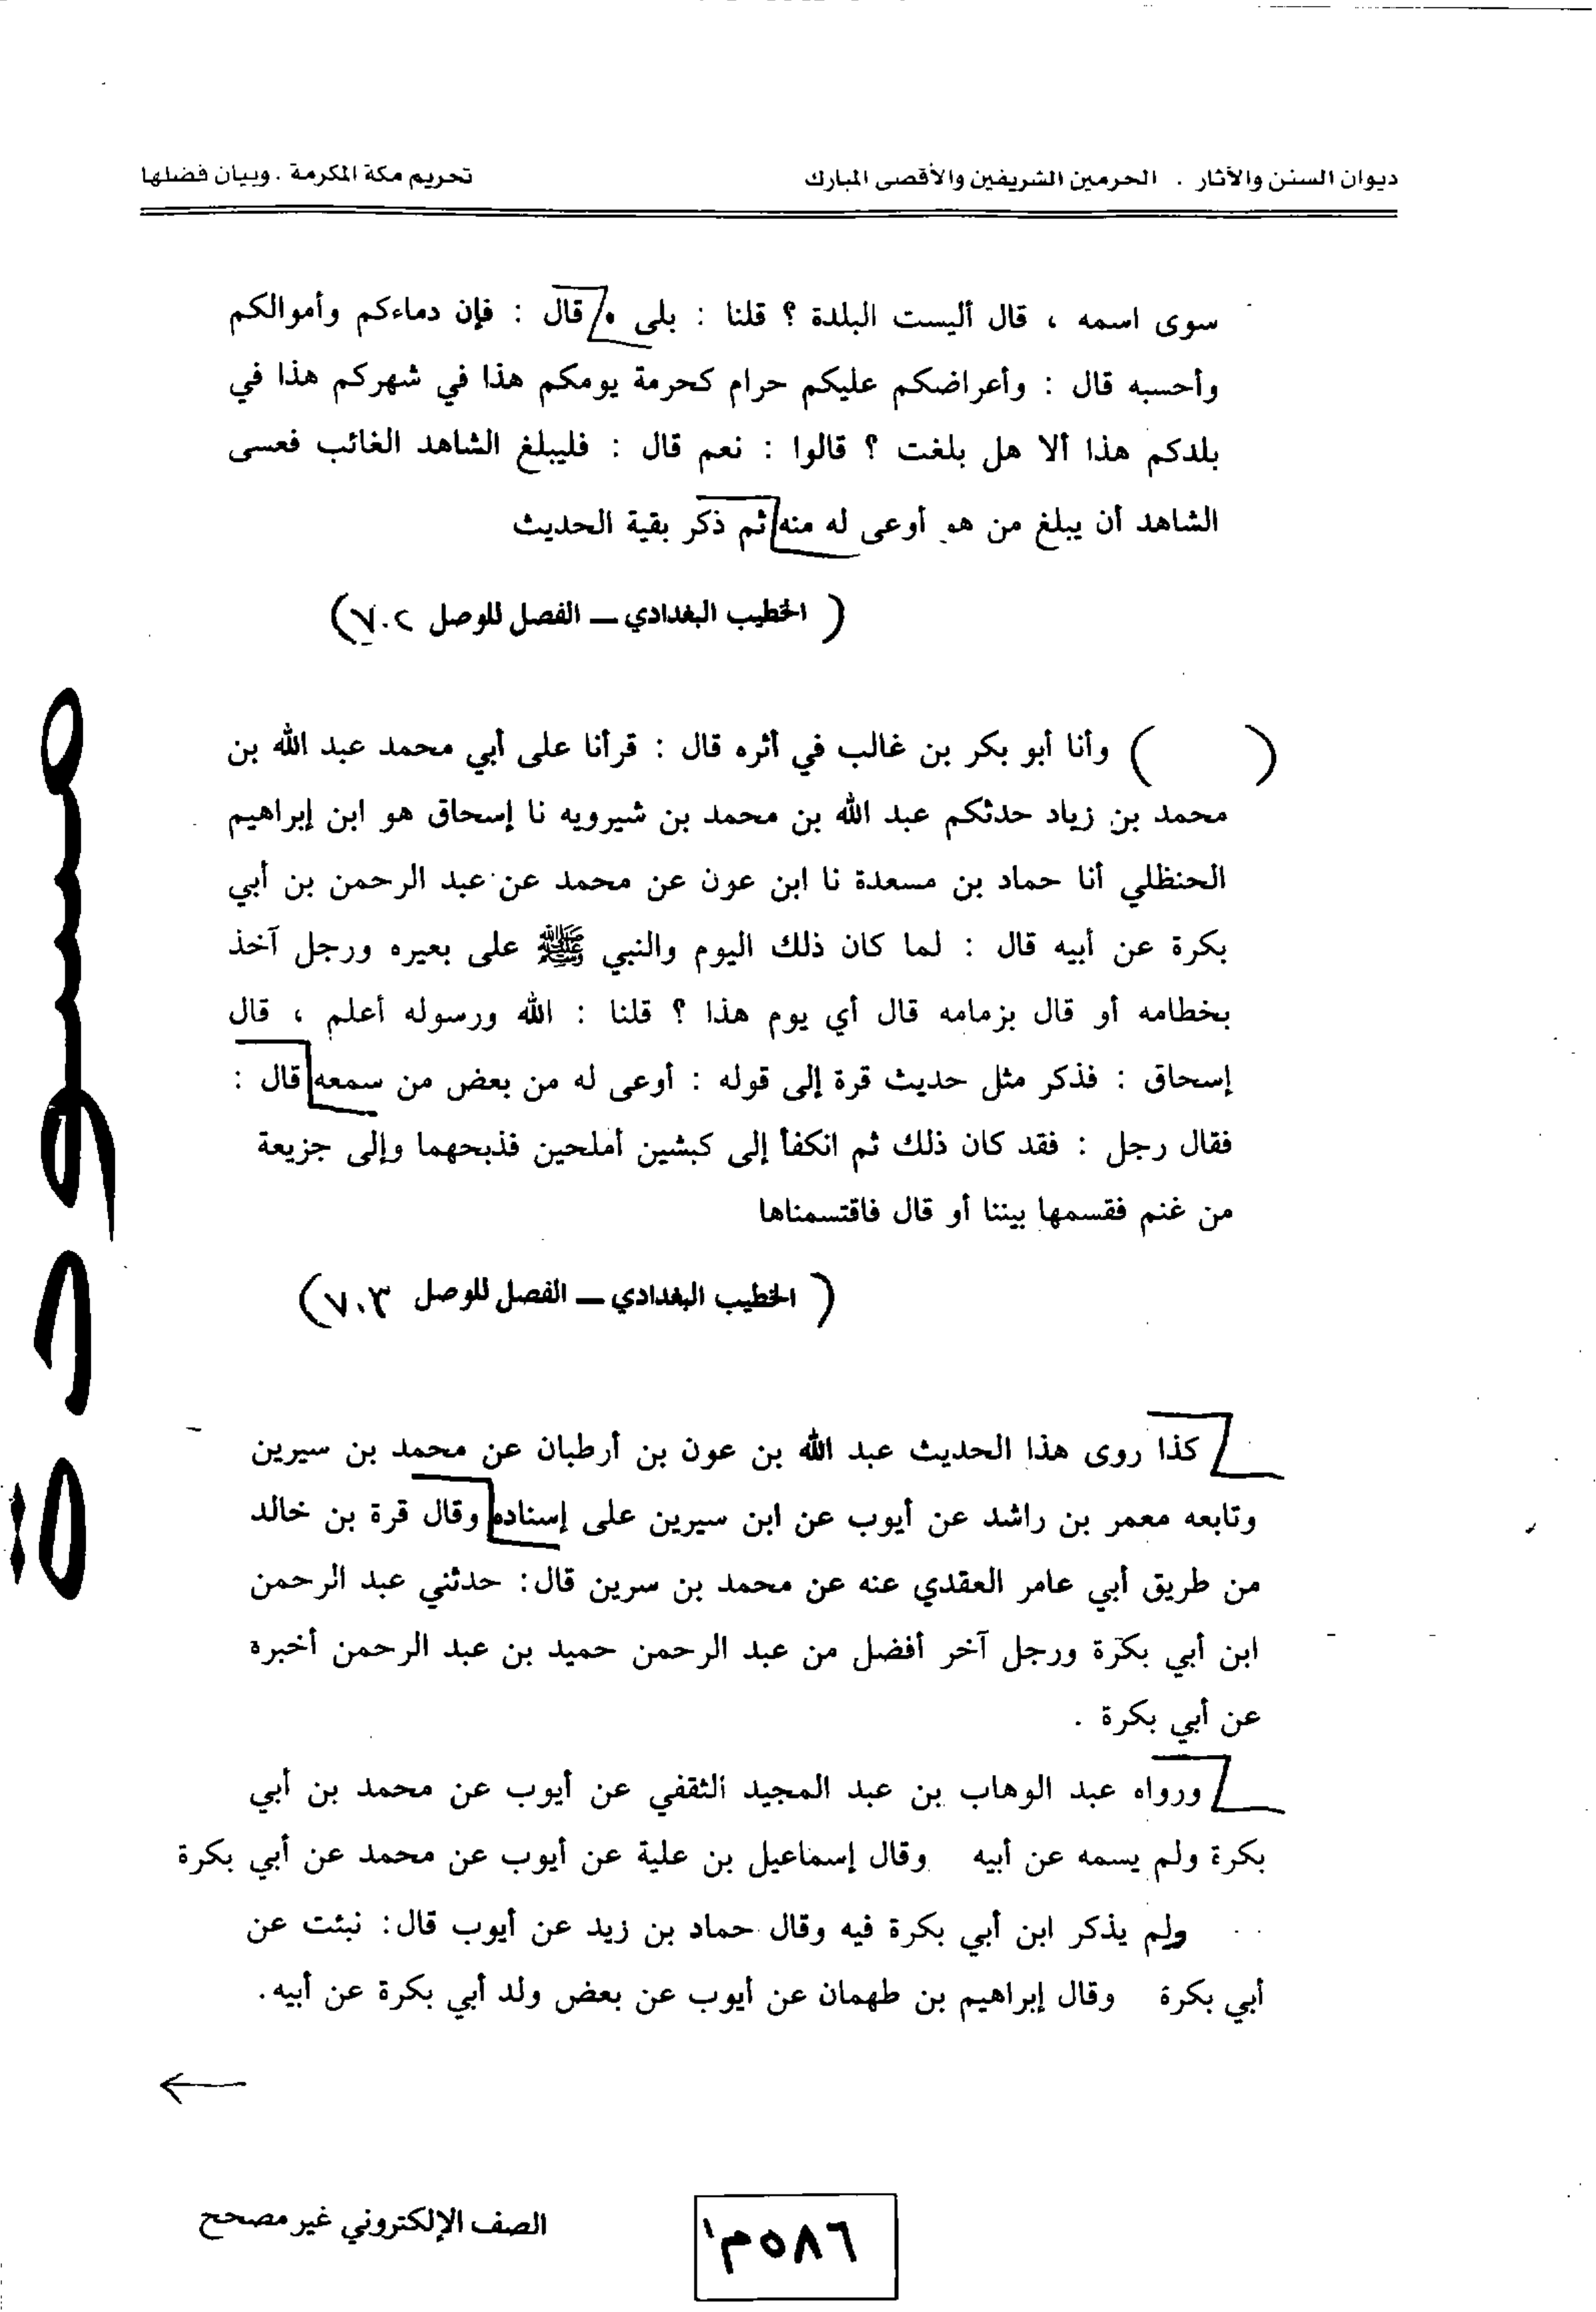 ديوان السنن والأثار . الحرمين الشريفين والأقصى المبارك
تحريم مكة المكرمة . وبيان فضلها
سوى اسمه ، قال أليست البلدة ؟ قلنا : بلى . قال : فإن دماءكم وأموالكم
وأحسبه قال : وأعراضكم عليكم حرام كحرمة يومكم هذا في شهركم هذا في
بلدكم هذا ألا هل بلغت ؟ قالوا : نعم قال : فليبلغ الشاهد الغائب فعسى
الشاهد أن يبلغ من هو أوعى له منه ثم ذكر بقية الحديث
( الخطيب البغدادي – الفصل للوصل ٧٠٢ )
( ) وأنا أبو بكر بن غالب في أثره قال : قرأنا على أبي محمد عبد الله بن
محمد بن زياد حدثكم عبد الله بن محمد بن شيرويه نا إسحاق هو ابن إبراهيم
الحنظلي أنا حماد بن مسعدة نا ابن عون عن محمد عن عبد الرحمن بن أبي
بكرة عن أبيه قال : لما كان ذلك اليوم والنبي ﷺ على بعيره ورجل آخذ
بخطامه أو قال بزمامه قال أي يوم هذا ؟ قلنا : الله ورسوله أعلم ، قال
إسحاق : فذكر مثل حديث قرة إلى قوله : أوعى له من بعض من سمعه قال :
فقال رجل : فقد كان ذلك ثم انكفأ إلى كبشين أملحين فذبحهما وإلى جزيعة
من غنم فقسمها بيننا أو قال فاقتسمناها
( الخطيب البغدادي – الفصل للوصل ٧٠٣ )
كذا روى هذا الحديث عبد الله بن عون بن أرطبان عن محمد بن سيرين
وتابعه معمر بن راشد عن أيوب عن ابن سيرين على إسناده وقال قرة بن خالد
من طريق أبي عامر العقدي عنه عن محمد بن سرين قال: حدثني عبد الرحمن
ابن أبي بكرة ورجل آخر أفضل من عبد الرحمن حميد بن عبد الرحمن أخبره
عن أبي بكرة .
ورواه عبد الوهاب بن عبد المجيد الثقفي عن أيوب عن محمد بن أبي
بكرة ولم يسمه عن أبيه وقال إسماعيل بن علية عن أيوب عن محمد عن أبي بكرة
ولم يذكر ابن أبي بكرة فيه وقال حماد بن زيد عن أيوب قال: نبئت عن
أبي بكرة وقال إبراهيم بن طهمان عن أيوب عن بعض ولد أبي بكرة عن أبيه.
٥٨٦م١
الصف الإلكتروني غير مصحح
مسودة